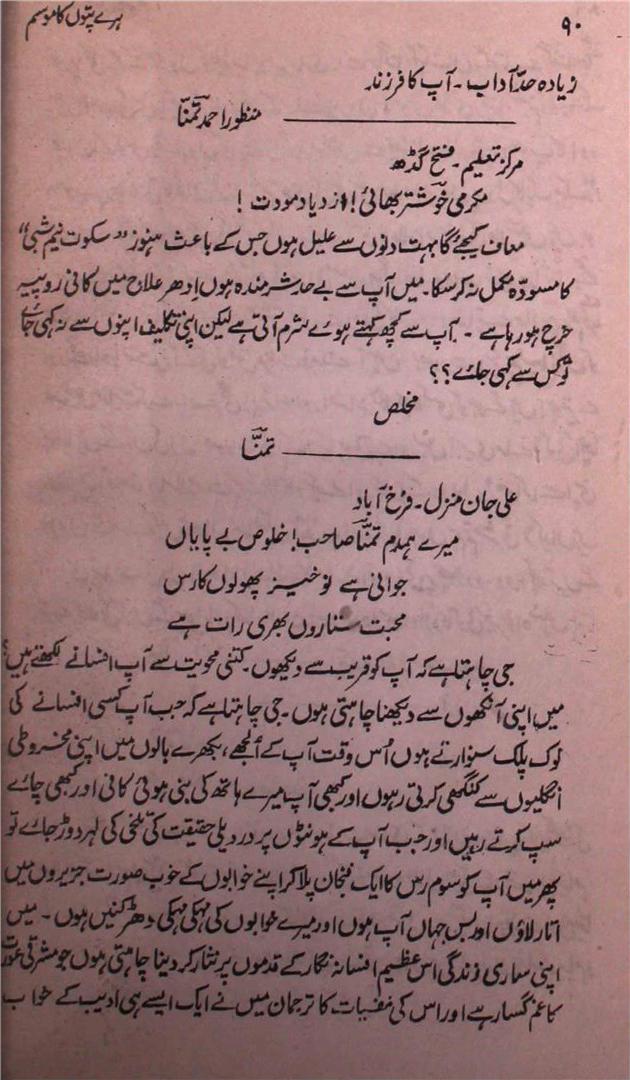 ۹۰
ہرے پتوں کا موسم
زیادہ حدِّ آداب ۔ آپ کا فرزند
منظور احمد تمنّا
مرکز تعلیم ۔ فتح گڈھ
مکرمی خوشتر بھائی! ازدیادِ مودت !
معاف کیجئے گا بہت دنوں سے علیل ہوں جس کے باعث ہنوز “سکوت نیم شبی”
کا مسودّہ مکمل نہ کر سکا۔ میں آپ سے بے حد شرمندہ ہوں اِدھر علاج میں کافی روپیہ
خرچ ہو رہا ہے ۔ آپ سے کچھ کہتے ہوئے شرم آتی ہے لیکن اپنی تکلیف اپنوں سے نہ کہی جائے
تو کس سے کہی جائے ؟؟
مخلص
تمنّا
علی جان منزل ۔ فرخ آباد
میرے ہمدم تمنّا صاحب! خلوص بے پایاں
جوانی ہے نو خیز پھولوں کا رس
محبت ستاروں بھری رات ہے
جی چاہتا ہے کہ آپ کو قریب سے دیکھوں۔ کتنی محویت سے آپ افسانے لکھتے ہیں؟
میں اپنی آنکھوں سے دیکھنا چاہتی ہوں ۔ جی چاہتا ہے کہ جب آپ کسی افسانے کی
نوک پلک سنوارتے ہوں اُس وقت آپ کے اُلجھے، بکھرے بالوں میں اپنی مخروطی
انگلیوں سے کنگھی کرتی رہوں اور کبھی آپ میرے ہاتھ کی بنی ہوئی کافی اور کبھی چائے
سپ کرتے رہیں اور جب آپ کے ہونٹوں پر دردیلی حقیقت کی تلخی کی لہر دوڑ جائے تو
پھر میں آپ کو سوم رس کا ایک فنجان پلا کر اپنے خوابوں کے خوب صورت جزیروں میں
اتار لاؤں اور بس جہاں آپ ہوں اور میرے خوابوں کی مہکی مہکی دھڑکنیں ہوں ۔ میں
اپنی ساری زندگی اس عظیم افسانہ نگار کے قدموں پر نثار کر دینا چاہتی ہوں جو مشرقی عورت
کا غم گسار ہے اور اس کی نفسیات کا ترجمان میں نے ایک ایسے ہی ادیب کے خواب